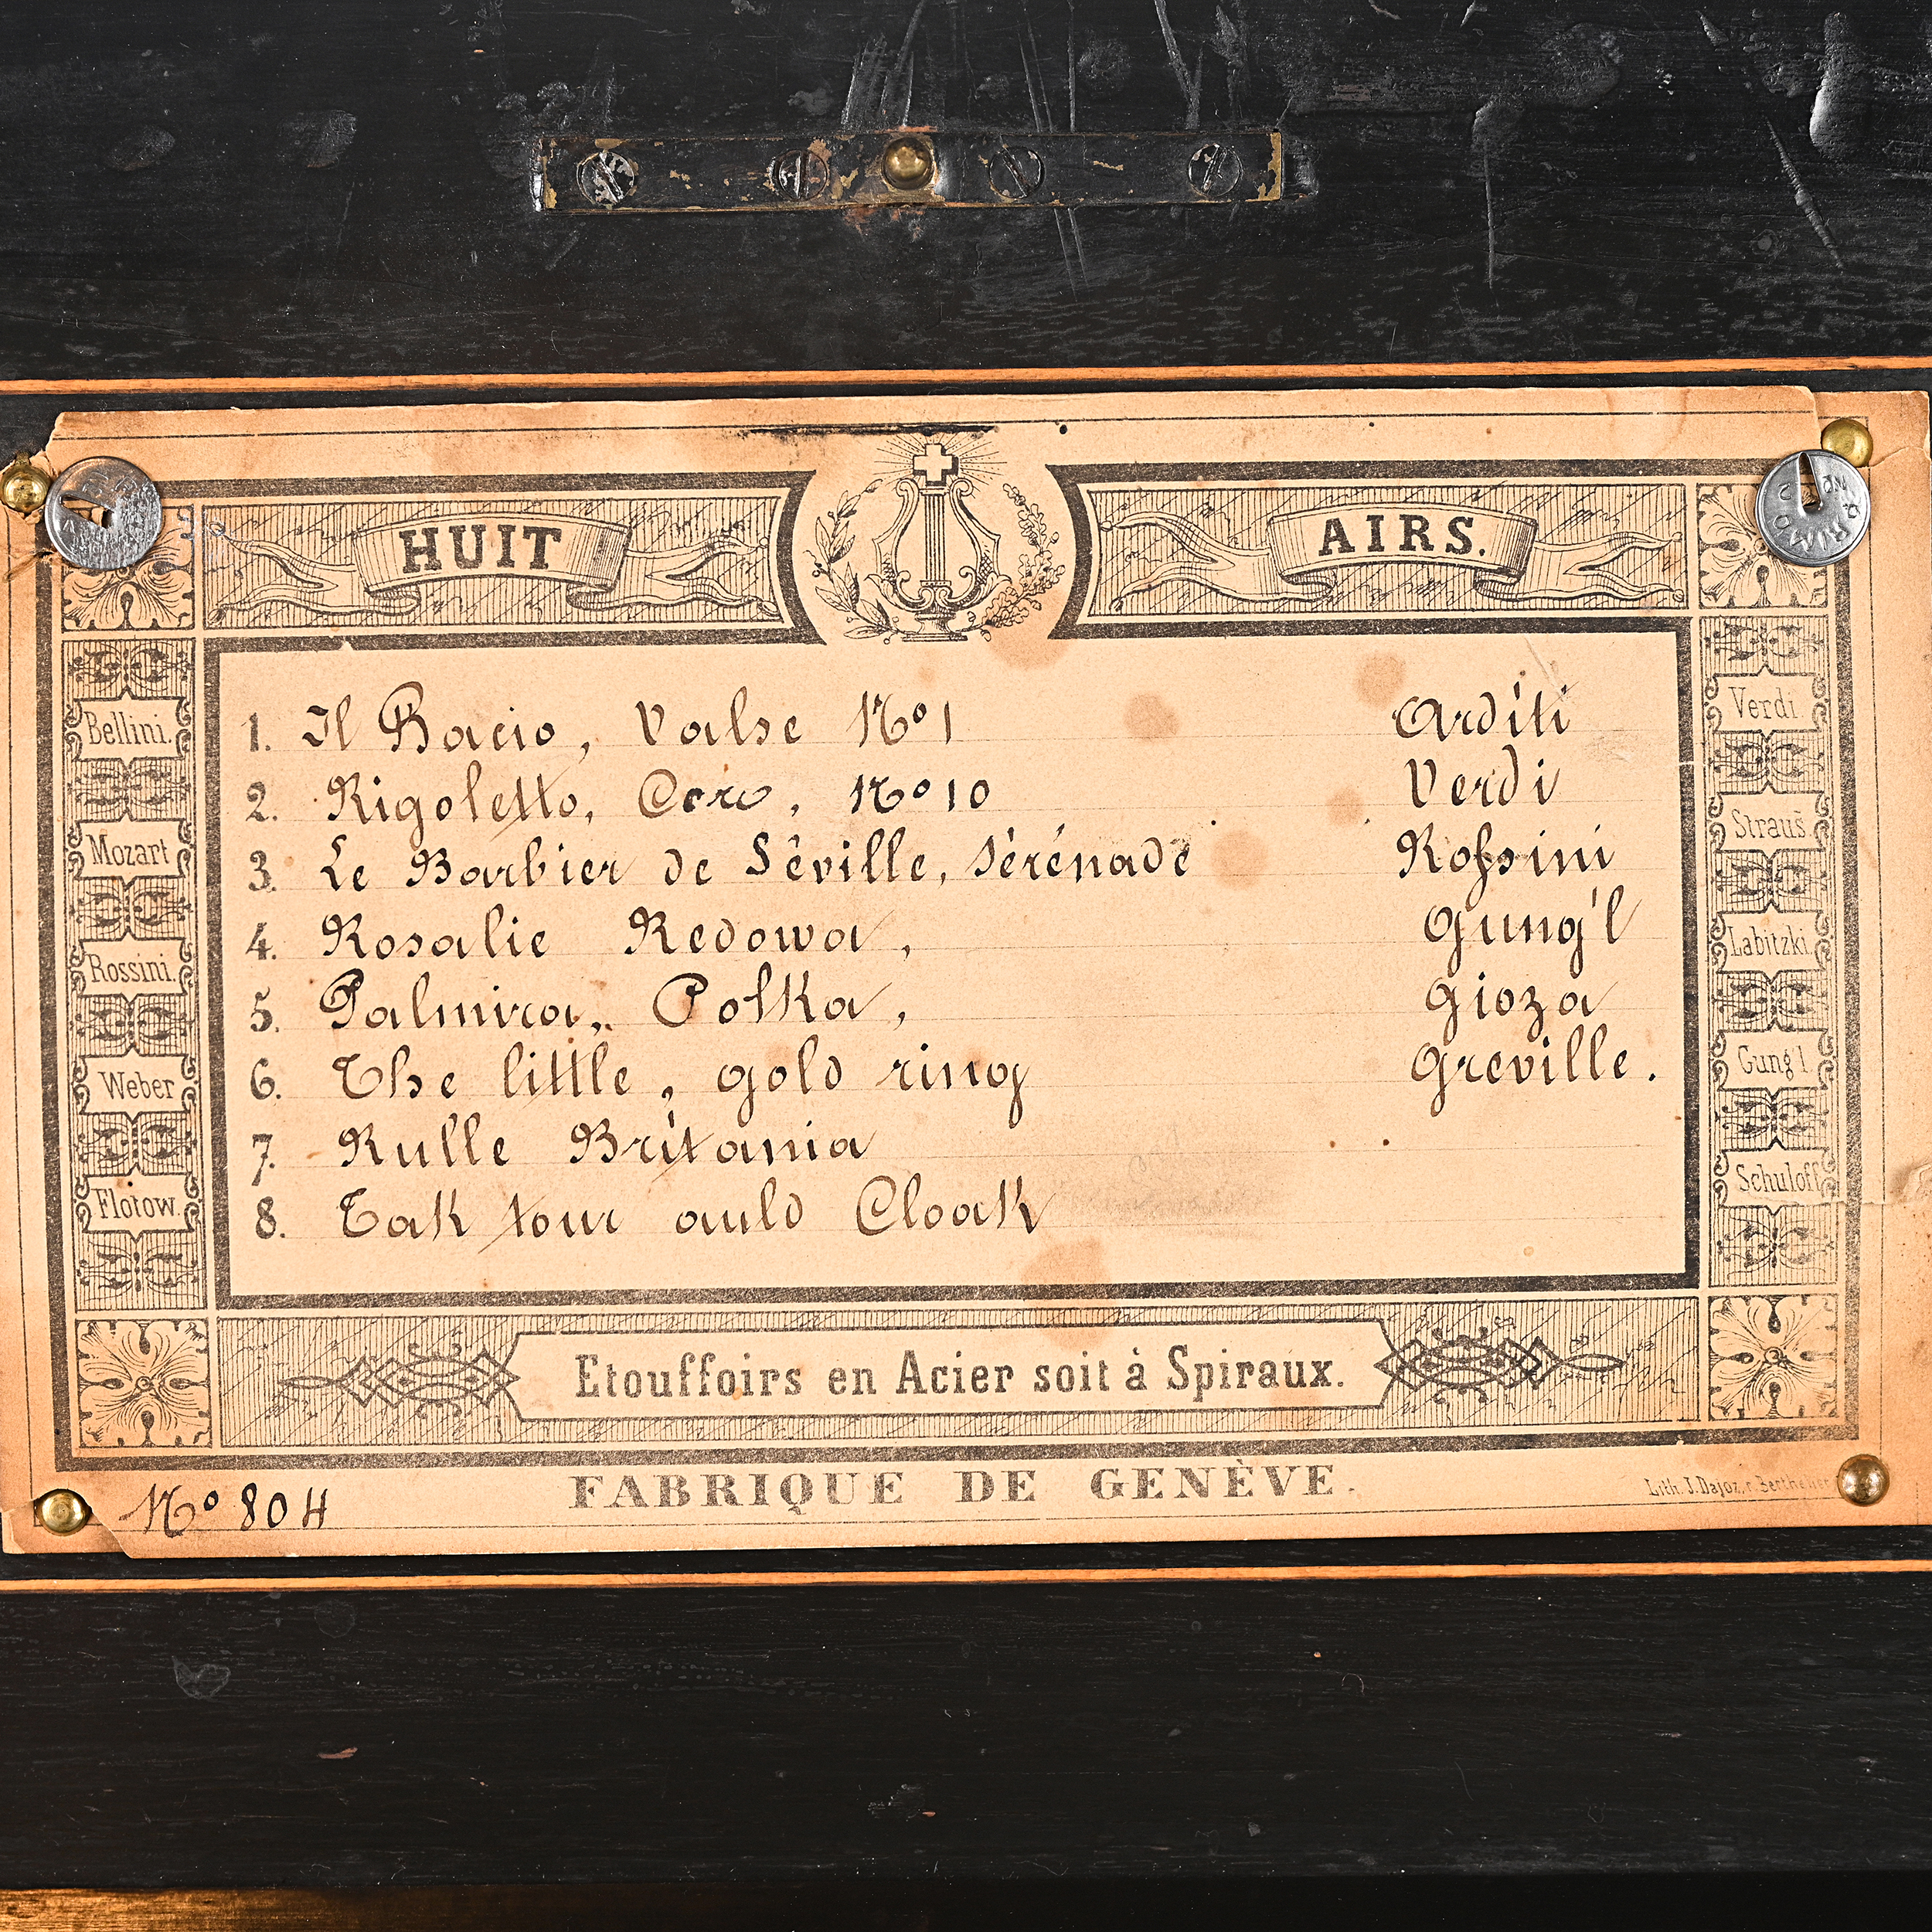 HUIT AIRS.
Bellini.
Mozart
Rossini.
Weber
Flotow.
1. Il Bacio, Valse No 1 Arditi
2. Rigoletto, Coro, No 10 Verdi
3. Le Barbier de Séville, Sérénade Rossini
4. Rosalie Redowa, Gung'l
5. Palmira, Polka, Gioza
6. The little, gold ring Greville.
7. Rulle Britania
8. Tak tour auld Cloak
Verdi.
Straus̄.
Labitzki.
Gung'l.
Schuloff.
Etouffoirs en Acier soit à Spiraux.
FABRIQUE DE GENÈVE.
No 804
Lith. J. Dajoz, r. Berthelier